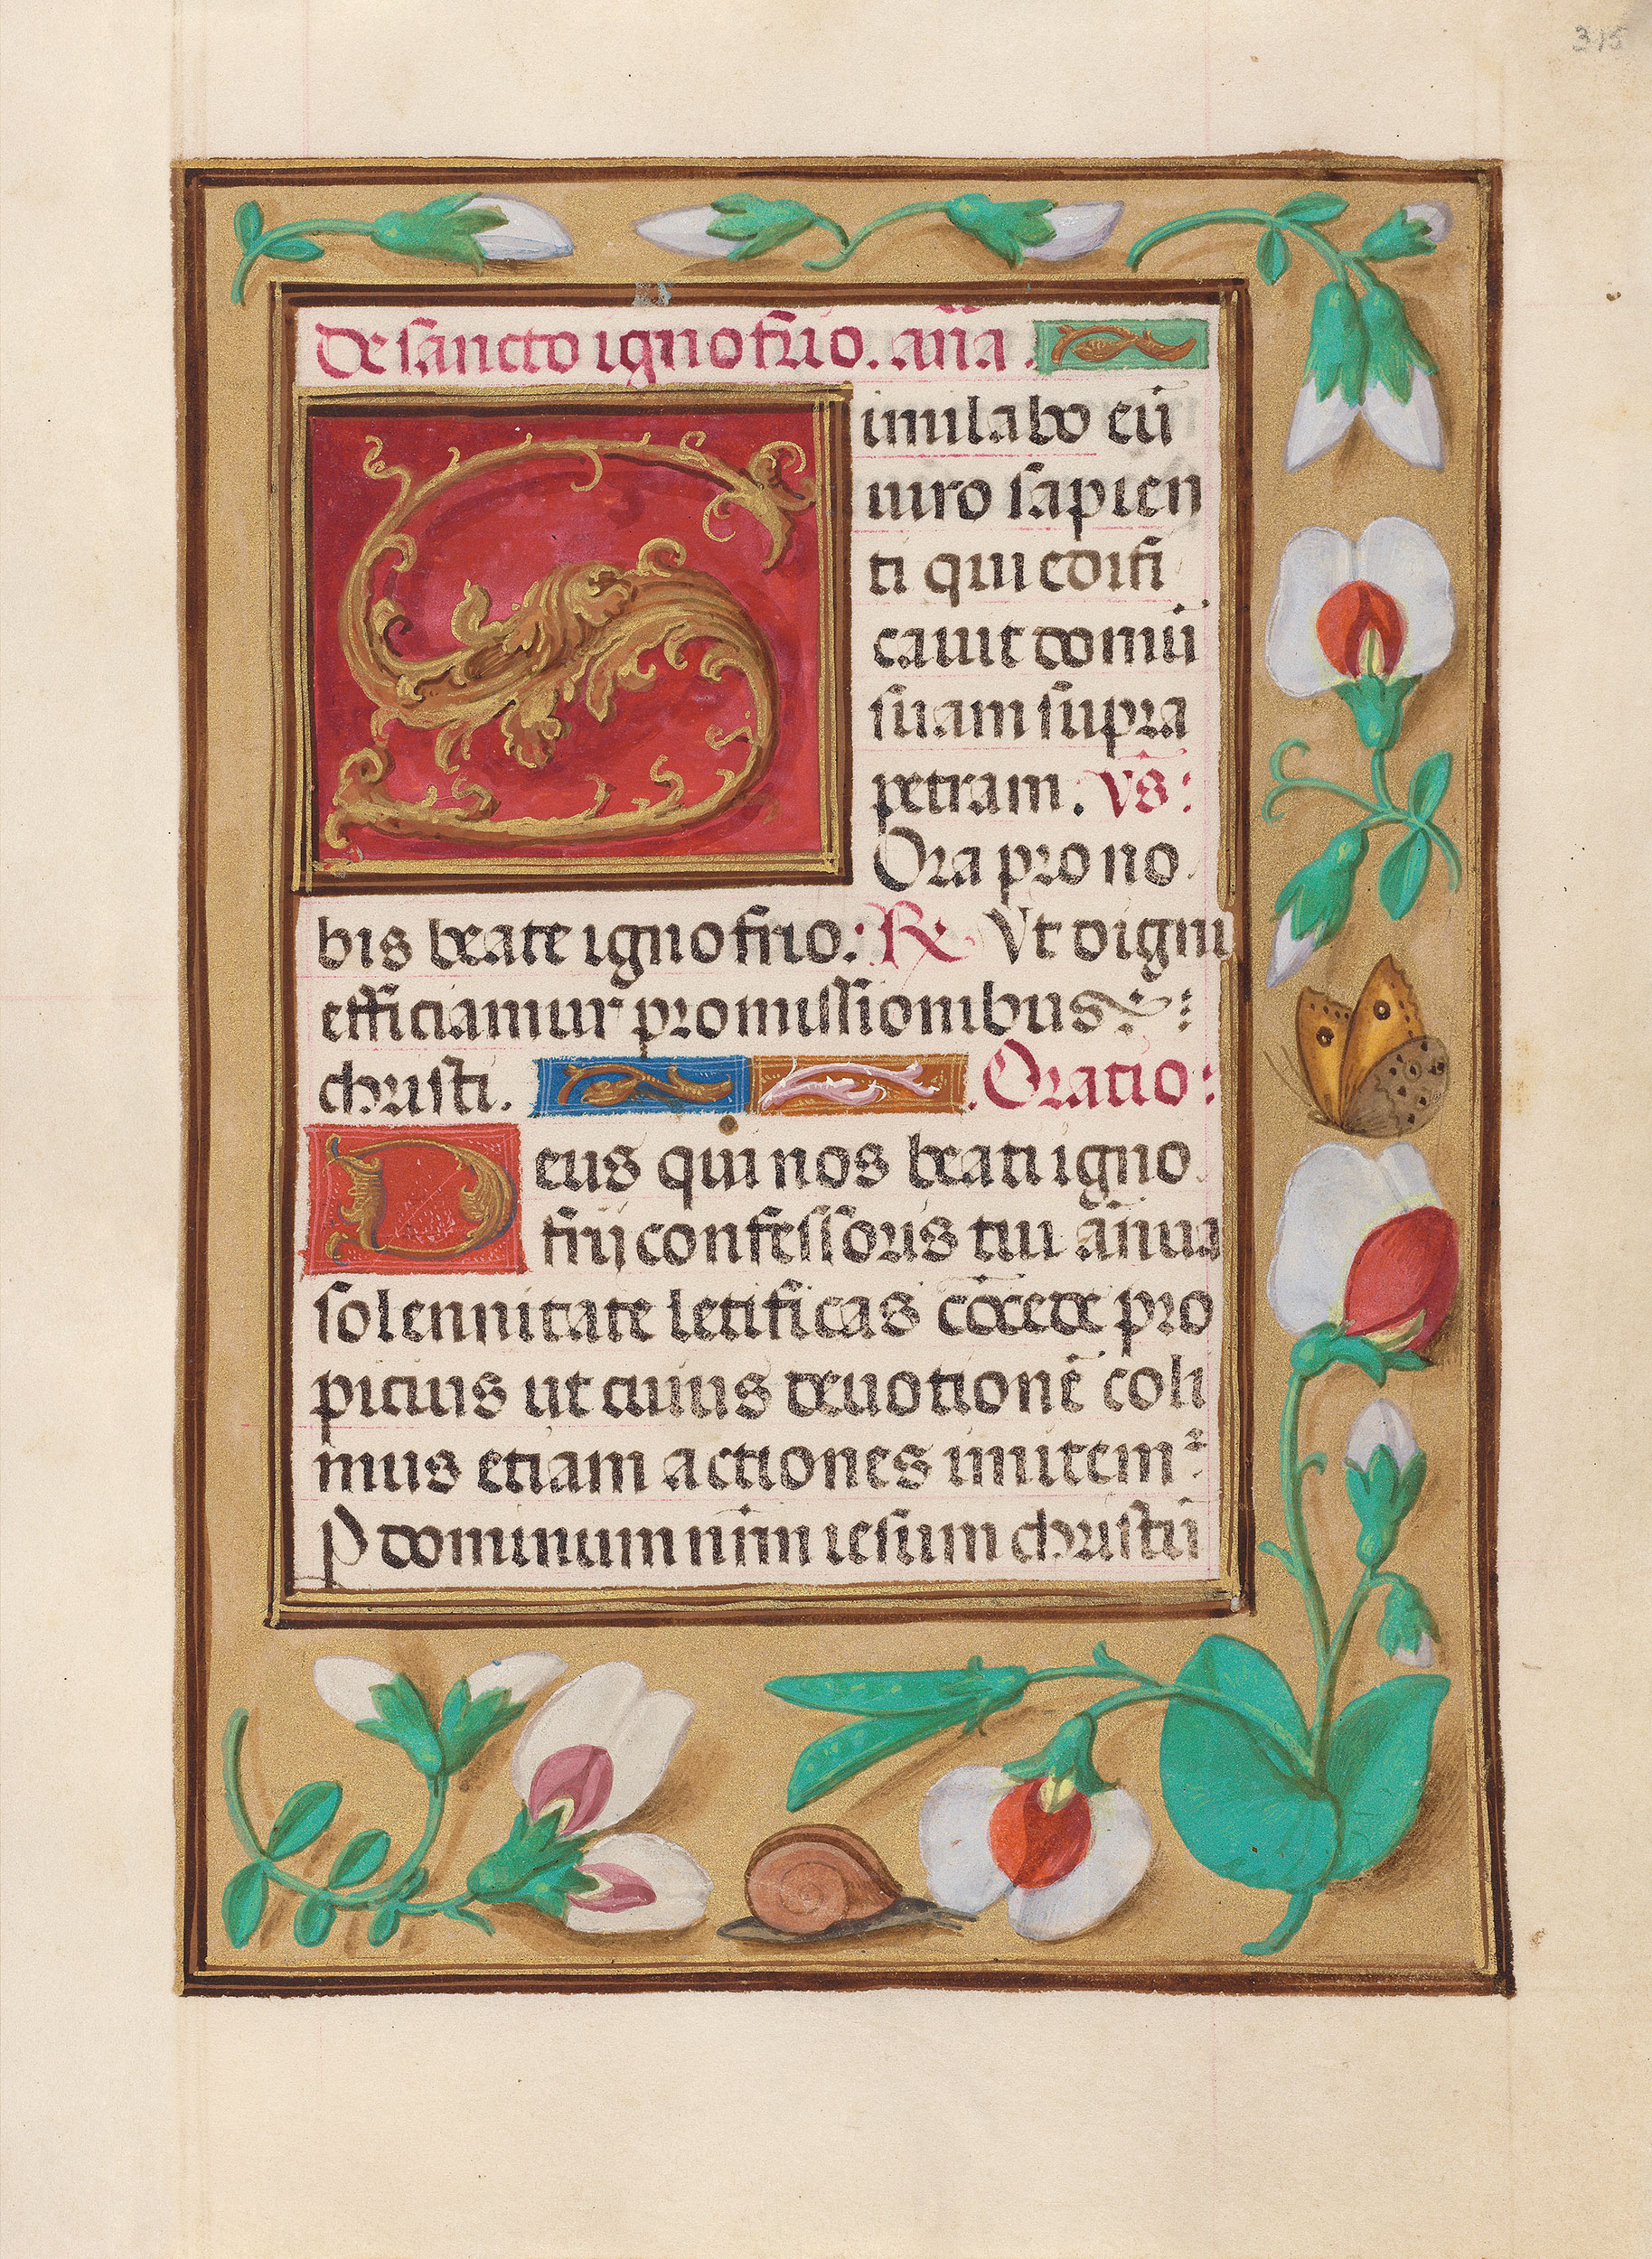 315
De sancto ignofrio. an̄a.
Similabo eū
uiro sapien
ti qui edifi
cauit domū
suam supra
petram. vs:
Ora pro no
bis beate ignofrio: R̷ Vt digni
efficiamur promissionibus:
christi. Oratio:
Deus qui nos beati igno
frij confessoris tui ānua
solennitate letificas cōcede pro
picius ut cuius deuotionē coli
mus etiam actiones imitemꝛ
P dominum nr̄m iesum christū